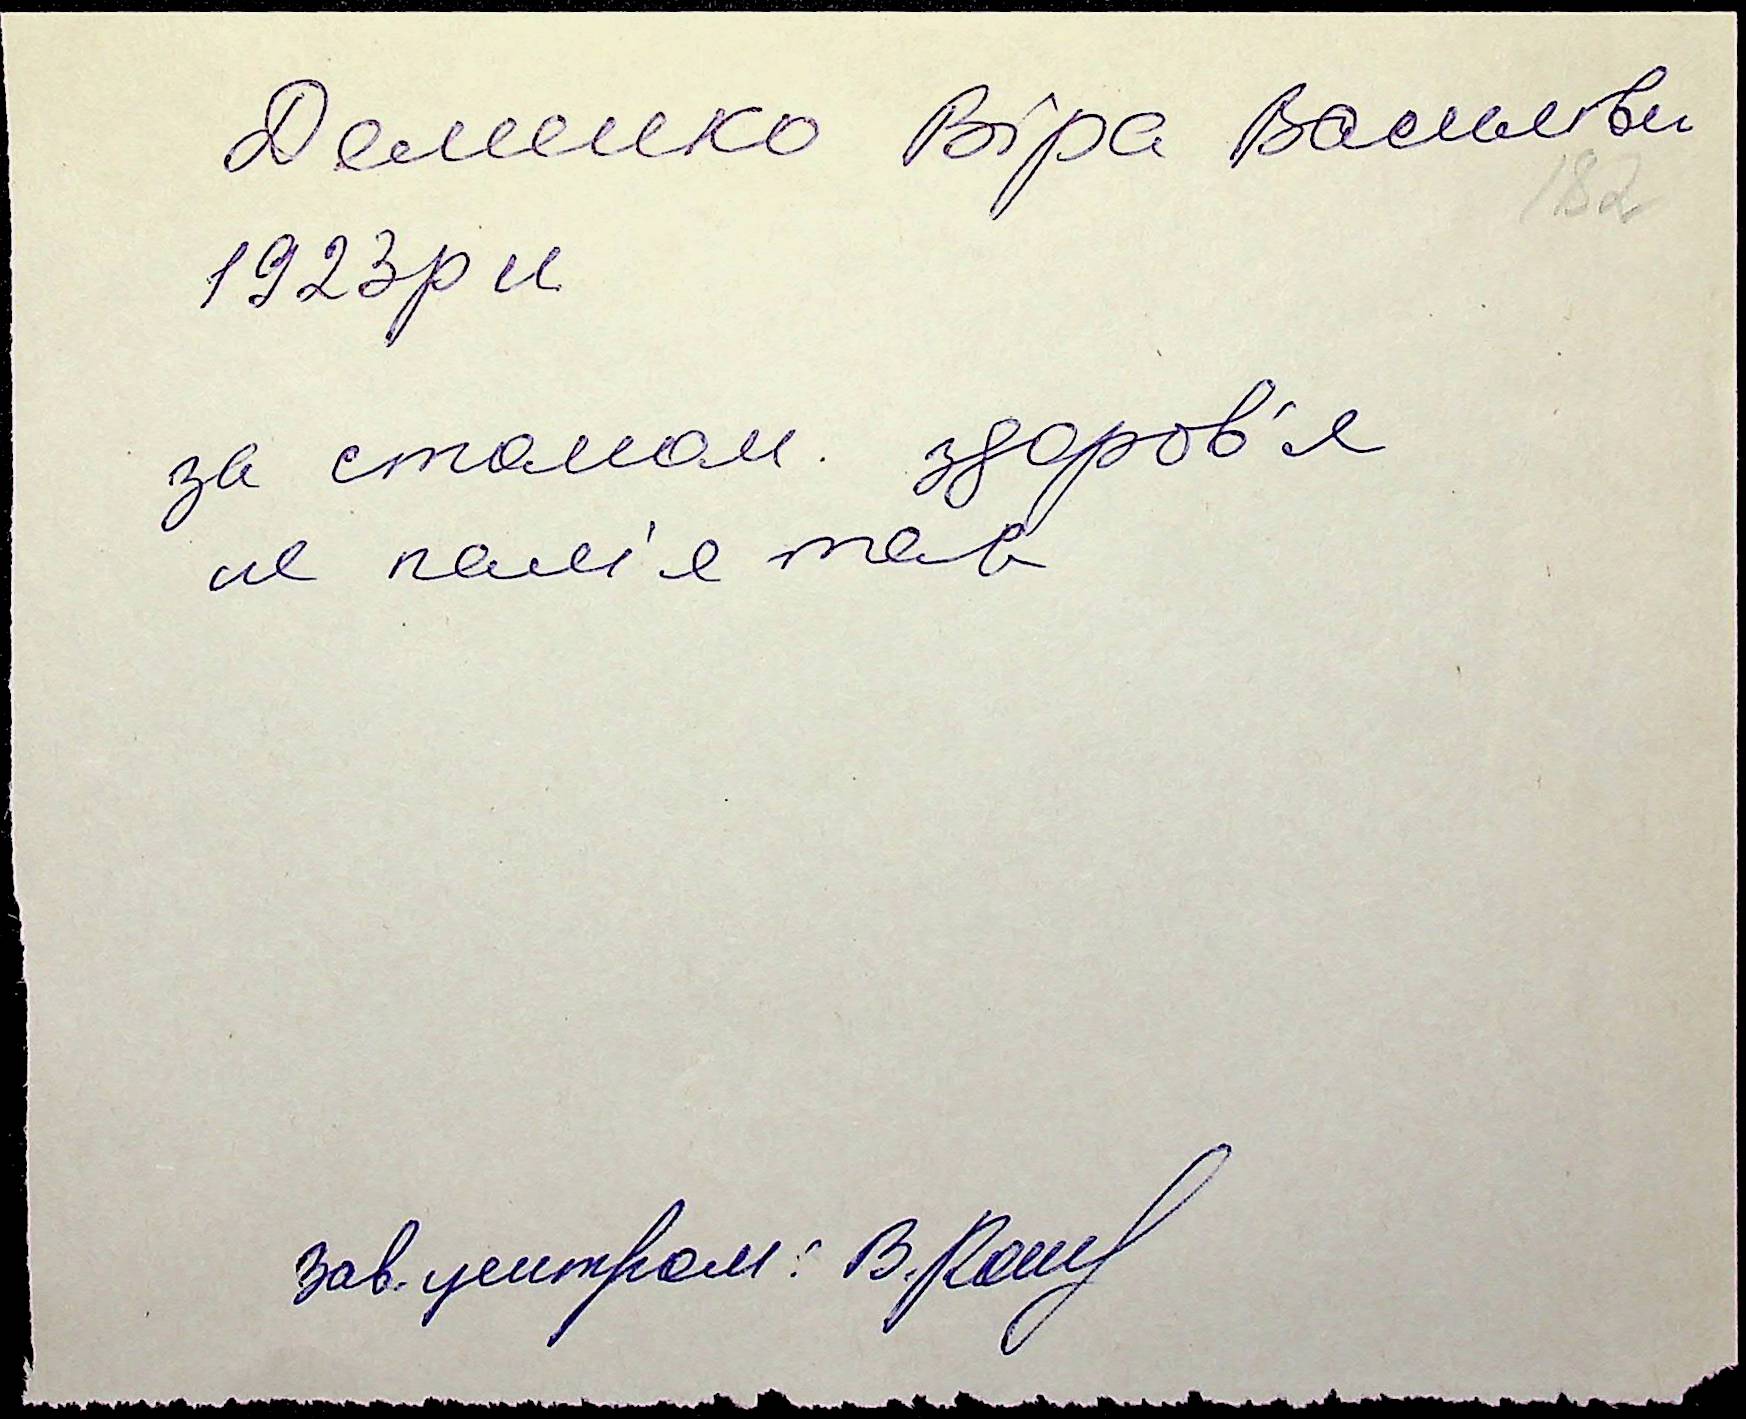 Деменко Віра Васильівн
182
1923р н
за станом здоров'я
не пам'ятає
Зав. центром: В.